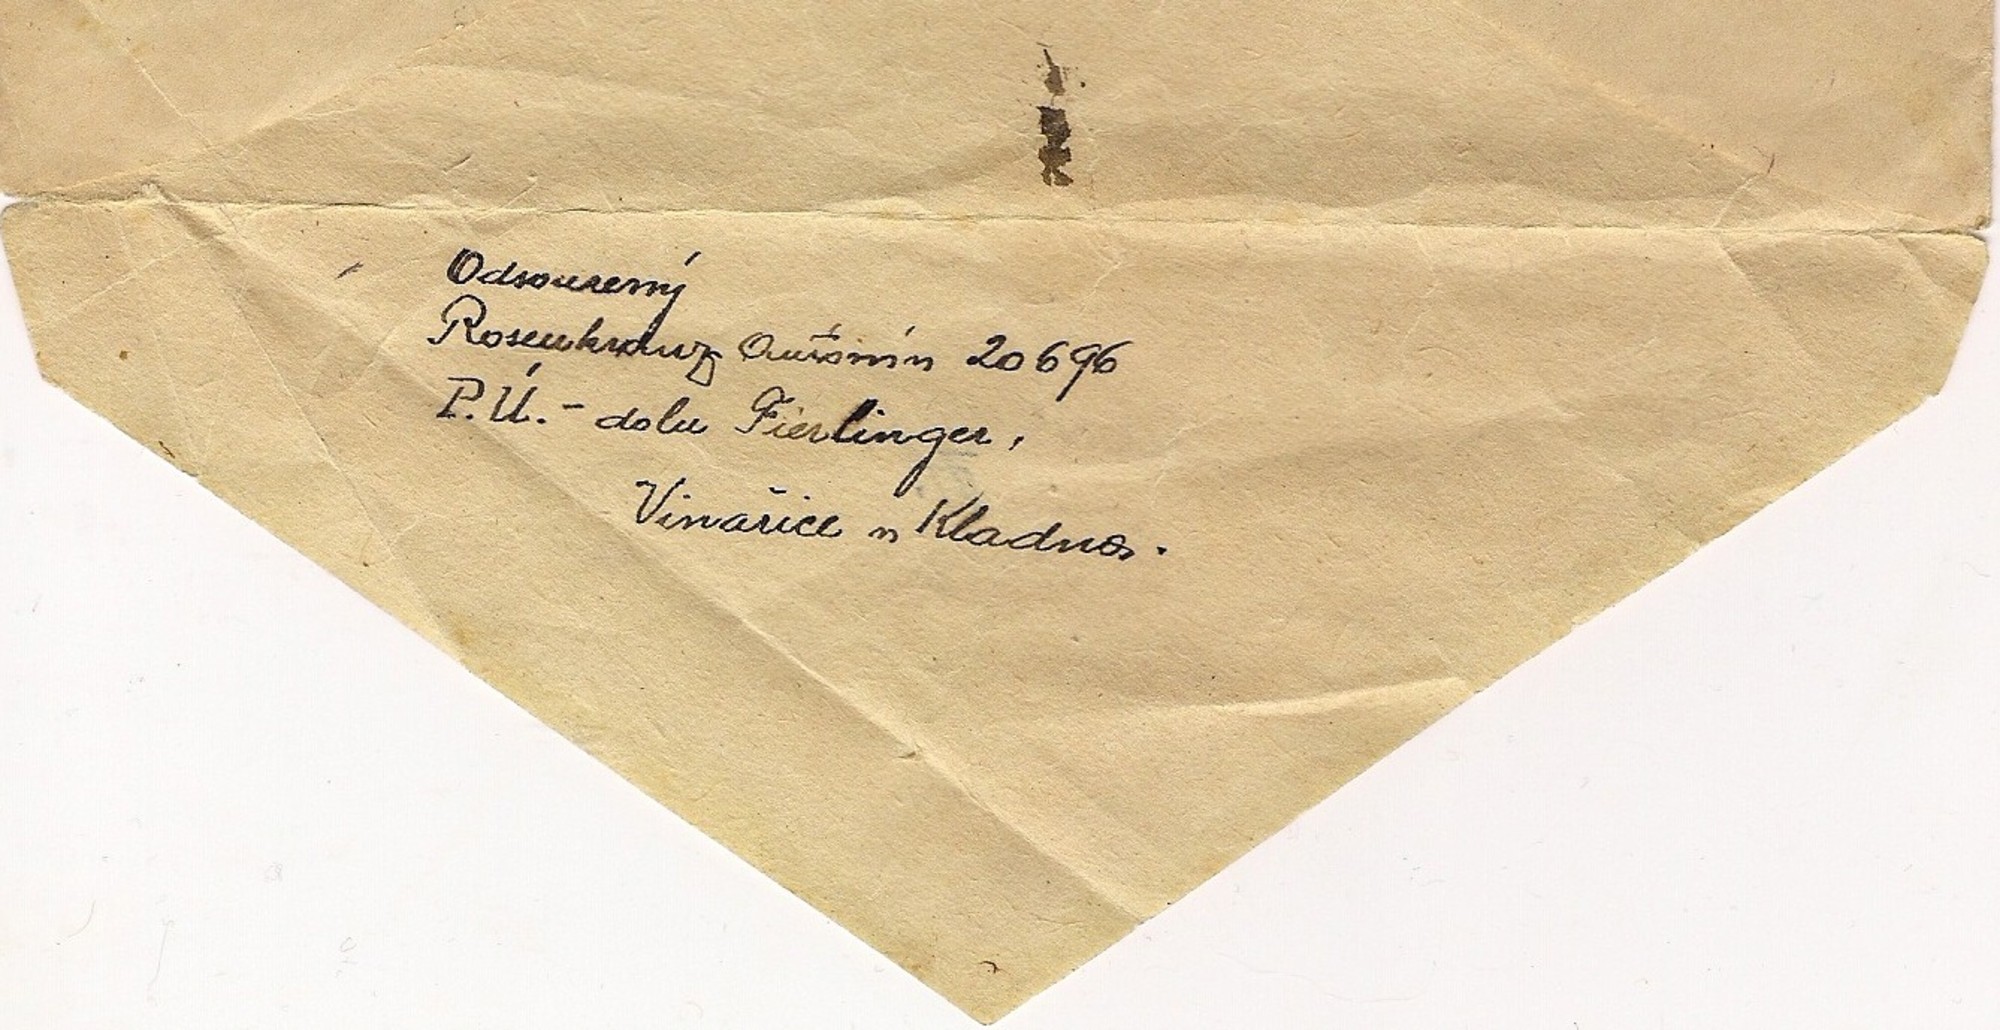 Odsouzený
Rosenkranz Antonín 20696
P.Ú. - dolu Fierlinger,
Vinařice u Kladna.